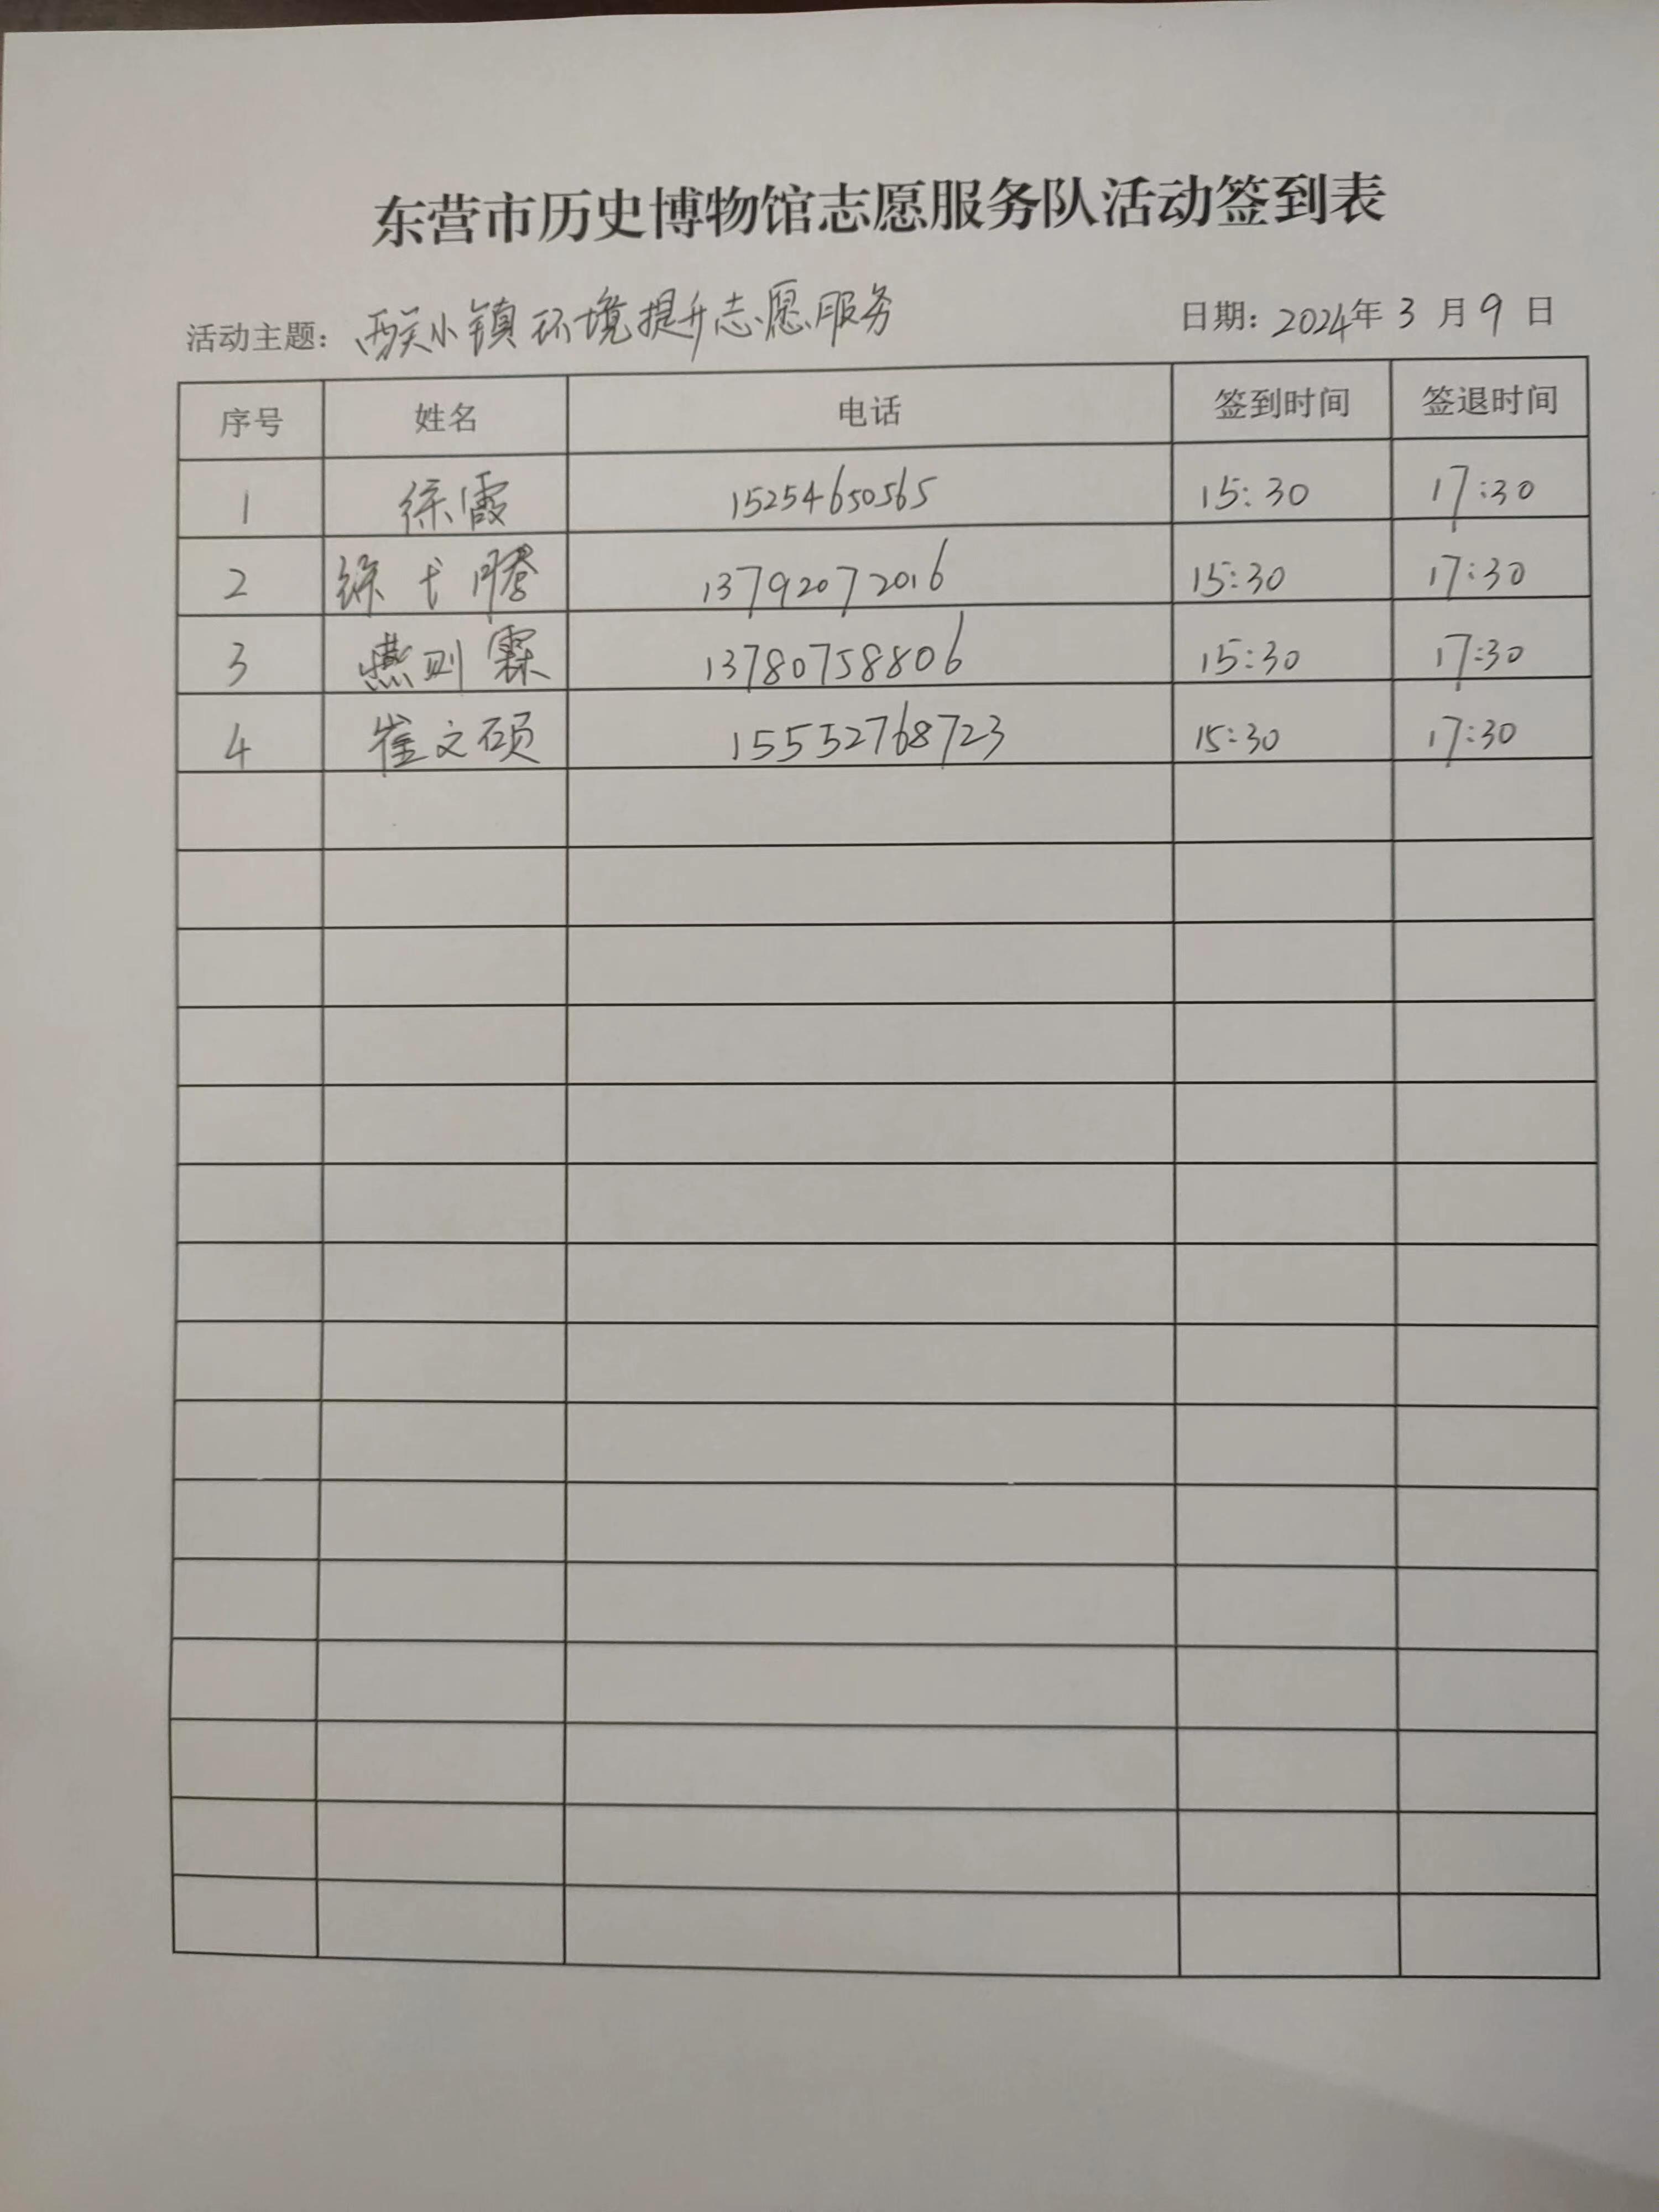 东营市历史博物馆志愿服务队活动签到表
活动主题: 小镇环境提升志愿服务 日期: 2024年 3 月 9 日
序号 姓名 电话 签到时间 签退时间
1 徐霞 15254650565 15:30 17:30
2 徐 腾 13792072016 15:30 17:30
3 燕则霖 13780758806 15:30 17:30
4 崔文硕 15552768723 15:30 17:30